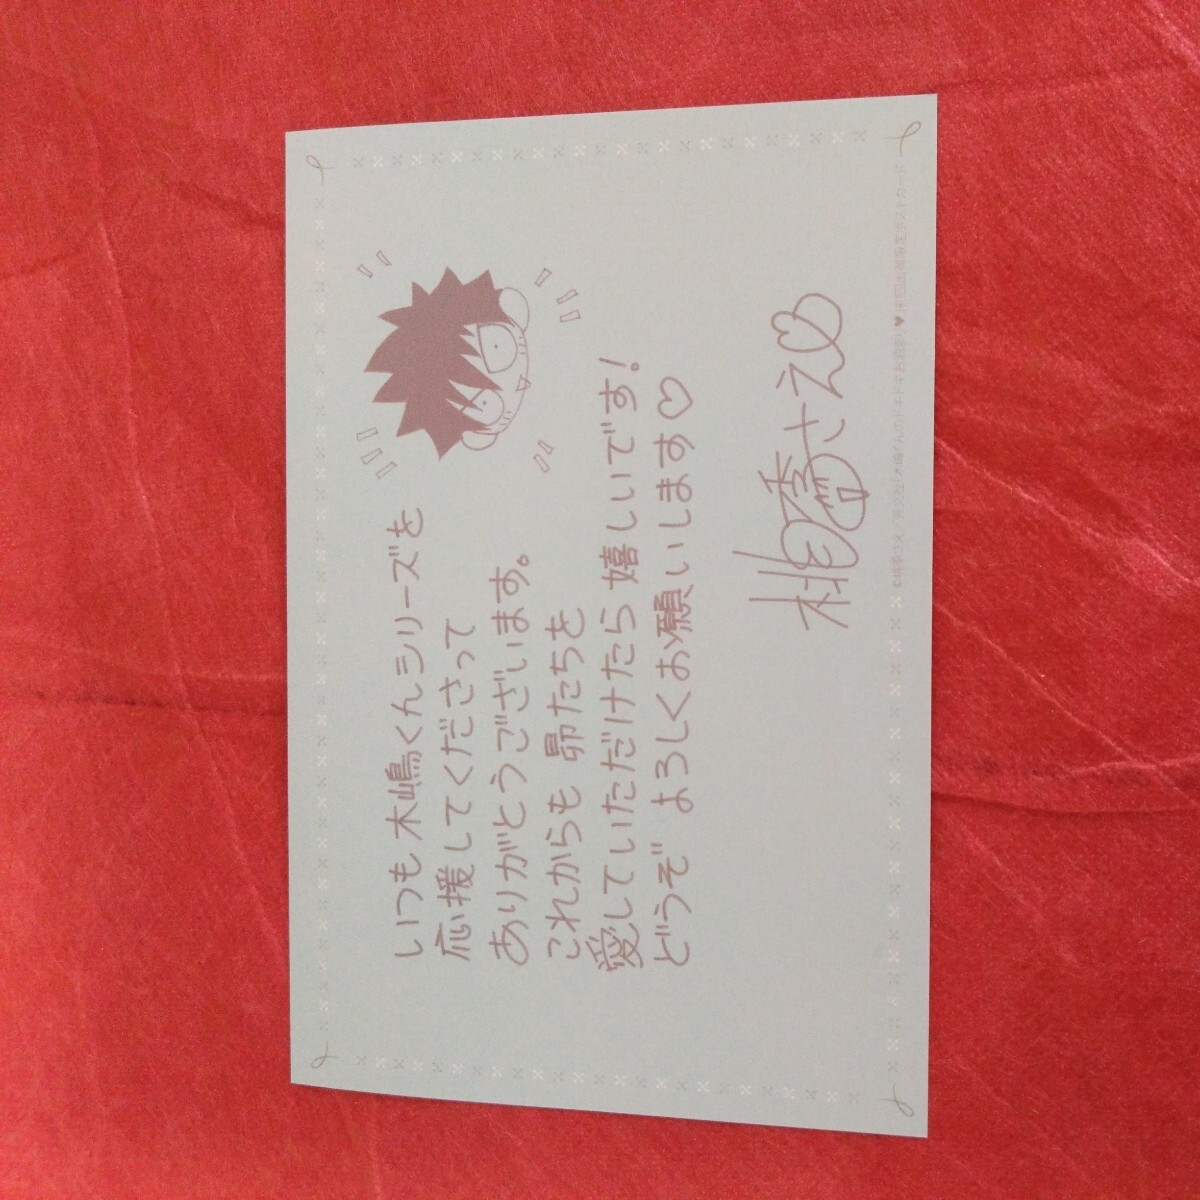 いつも木嶋くんシリーズを
応援してくださって
ありがとうございます。
これからも昴たちを
愛していただけたら嬉しいです!
どうぞ よろしくお願いします♡
桃季さえ